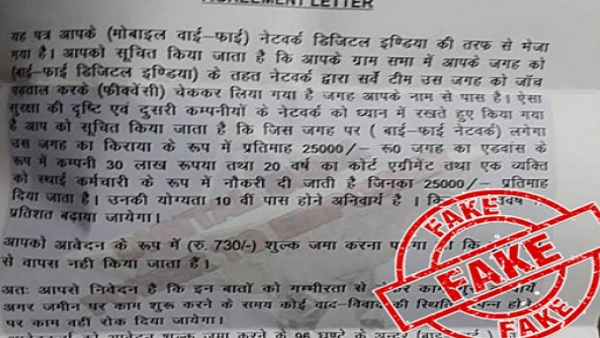 AGREEMENT LETTER
यह पत्र आपके (मोबाइल वाई-फाई) नेटवर्क डिजिटल इण्डिया की तरफ से भेजा
गया है। आपको सूचित किया जाता है कि आपके ग्राम सभा में आपके जगह को
(बाई-फाई डिजिटल इण्डिया) के तहत नेटवर्क द्वारा सर्वे टीम उस जगह को जाँच
पड़ताल करके (फीक्वेंसी) चेककर लिया गया है जगह आपके नाम से पास है। ऐसा
सुरक्षा की दृष्टि एवं दुसरी कम्पनीयों के नेटवर्क को ध्यान में रखते हुए किया गया
है आप को सुचित किया जाता है कि जिस जगह पर ( बाई-फाई नेटवर्क) लगेगा
उस जगह का किराया के रूप में प्रतिमाह 25000/- रू0 जगह का एडवांस के
रूप में कम्पनी 30 लाख रूपया तथा 20 वर्ष का कोर्ट एग्रीमेंट तथा एक व्यक्ति
को स्थाई कर्मचारी के रूप में नौकरी दी जाती है जिनका 25000/- प्रतिमाह
दिया जाता है। उनकी योग्यता 10 वीं पास होने अनिवार्य है ।
प्रतिशत बढ़ाया जायेगा।
आपको आवेदन के रूप में (रु. 730/-) शुल्क जमा करना
से वापस नही किया जाता हैं।
अतः आपसे निवेदन है कि इन बातों को गम्भीरता से
अगर जमीन पर काम शुरू करने के समय कोई वाद-विवाद की स्थिति
पर काम वही रोक दिया जायेगा।
आवेदन शुल्क जमा करने के 96 घण्टे के अन्दर
FAKE
FAKE
FAKE